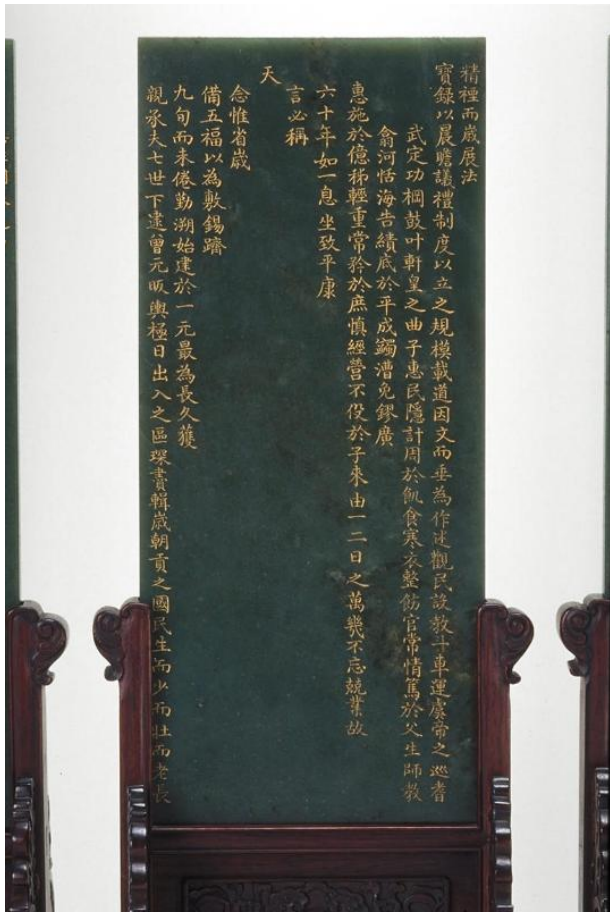 精禋而嵗展法
寳録以晨瞻議禮制度以立之規模載道因文而垂為作述觀民設教斗車運虞帝之巡耆
武定功棡鼓叶軒皇之曲子惠民隱計周於飢食寒衣整飭官常情篤於父生師教
翕河恬海告績底於平成蠲漕免鏐廣
惠施於億稊輕重常矜於庶慎經營不伇於子來由一二日之萬幾不忘兢業故
六十年如一息坐致平康
言必稱
天
念惟省嵗
備五福以為敷錫躋
九旬而未倦勤溯始建於一元最為長久獲
親承夫七世下逮曾元昄輿極日出入之區琛賮輯嵗朝貢之國民生而少而壯而老長